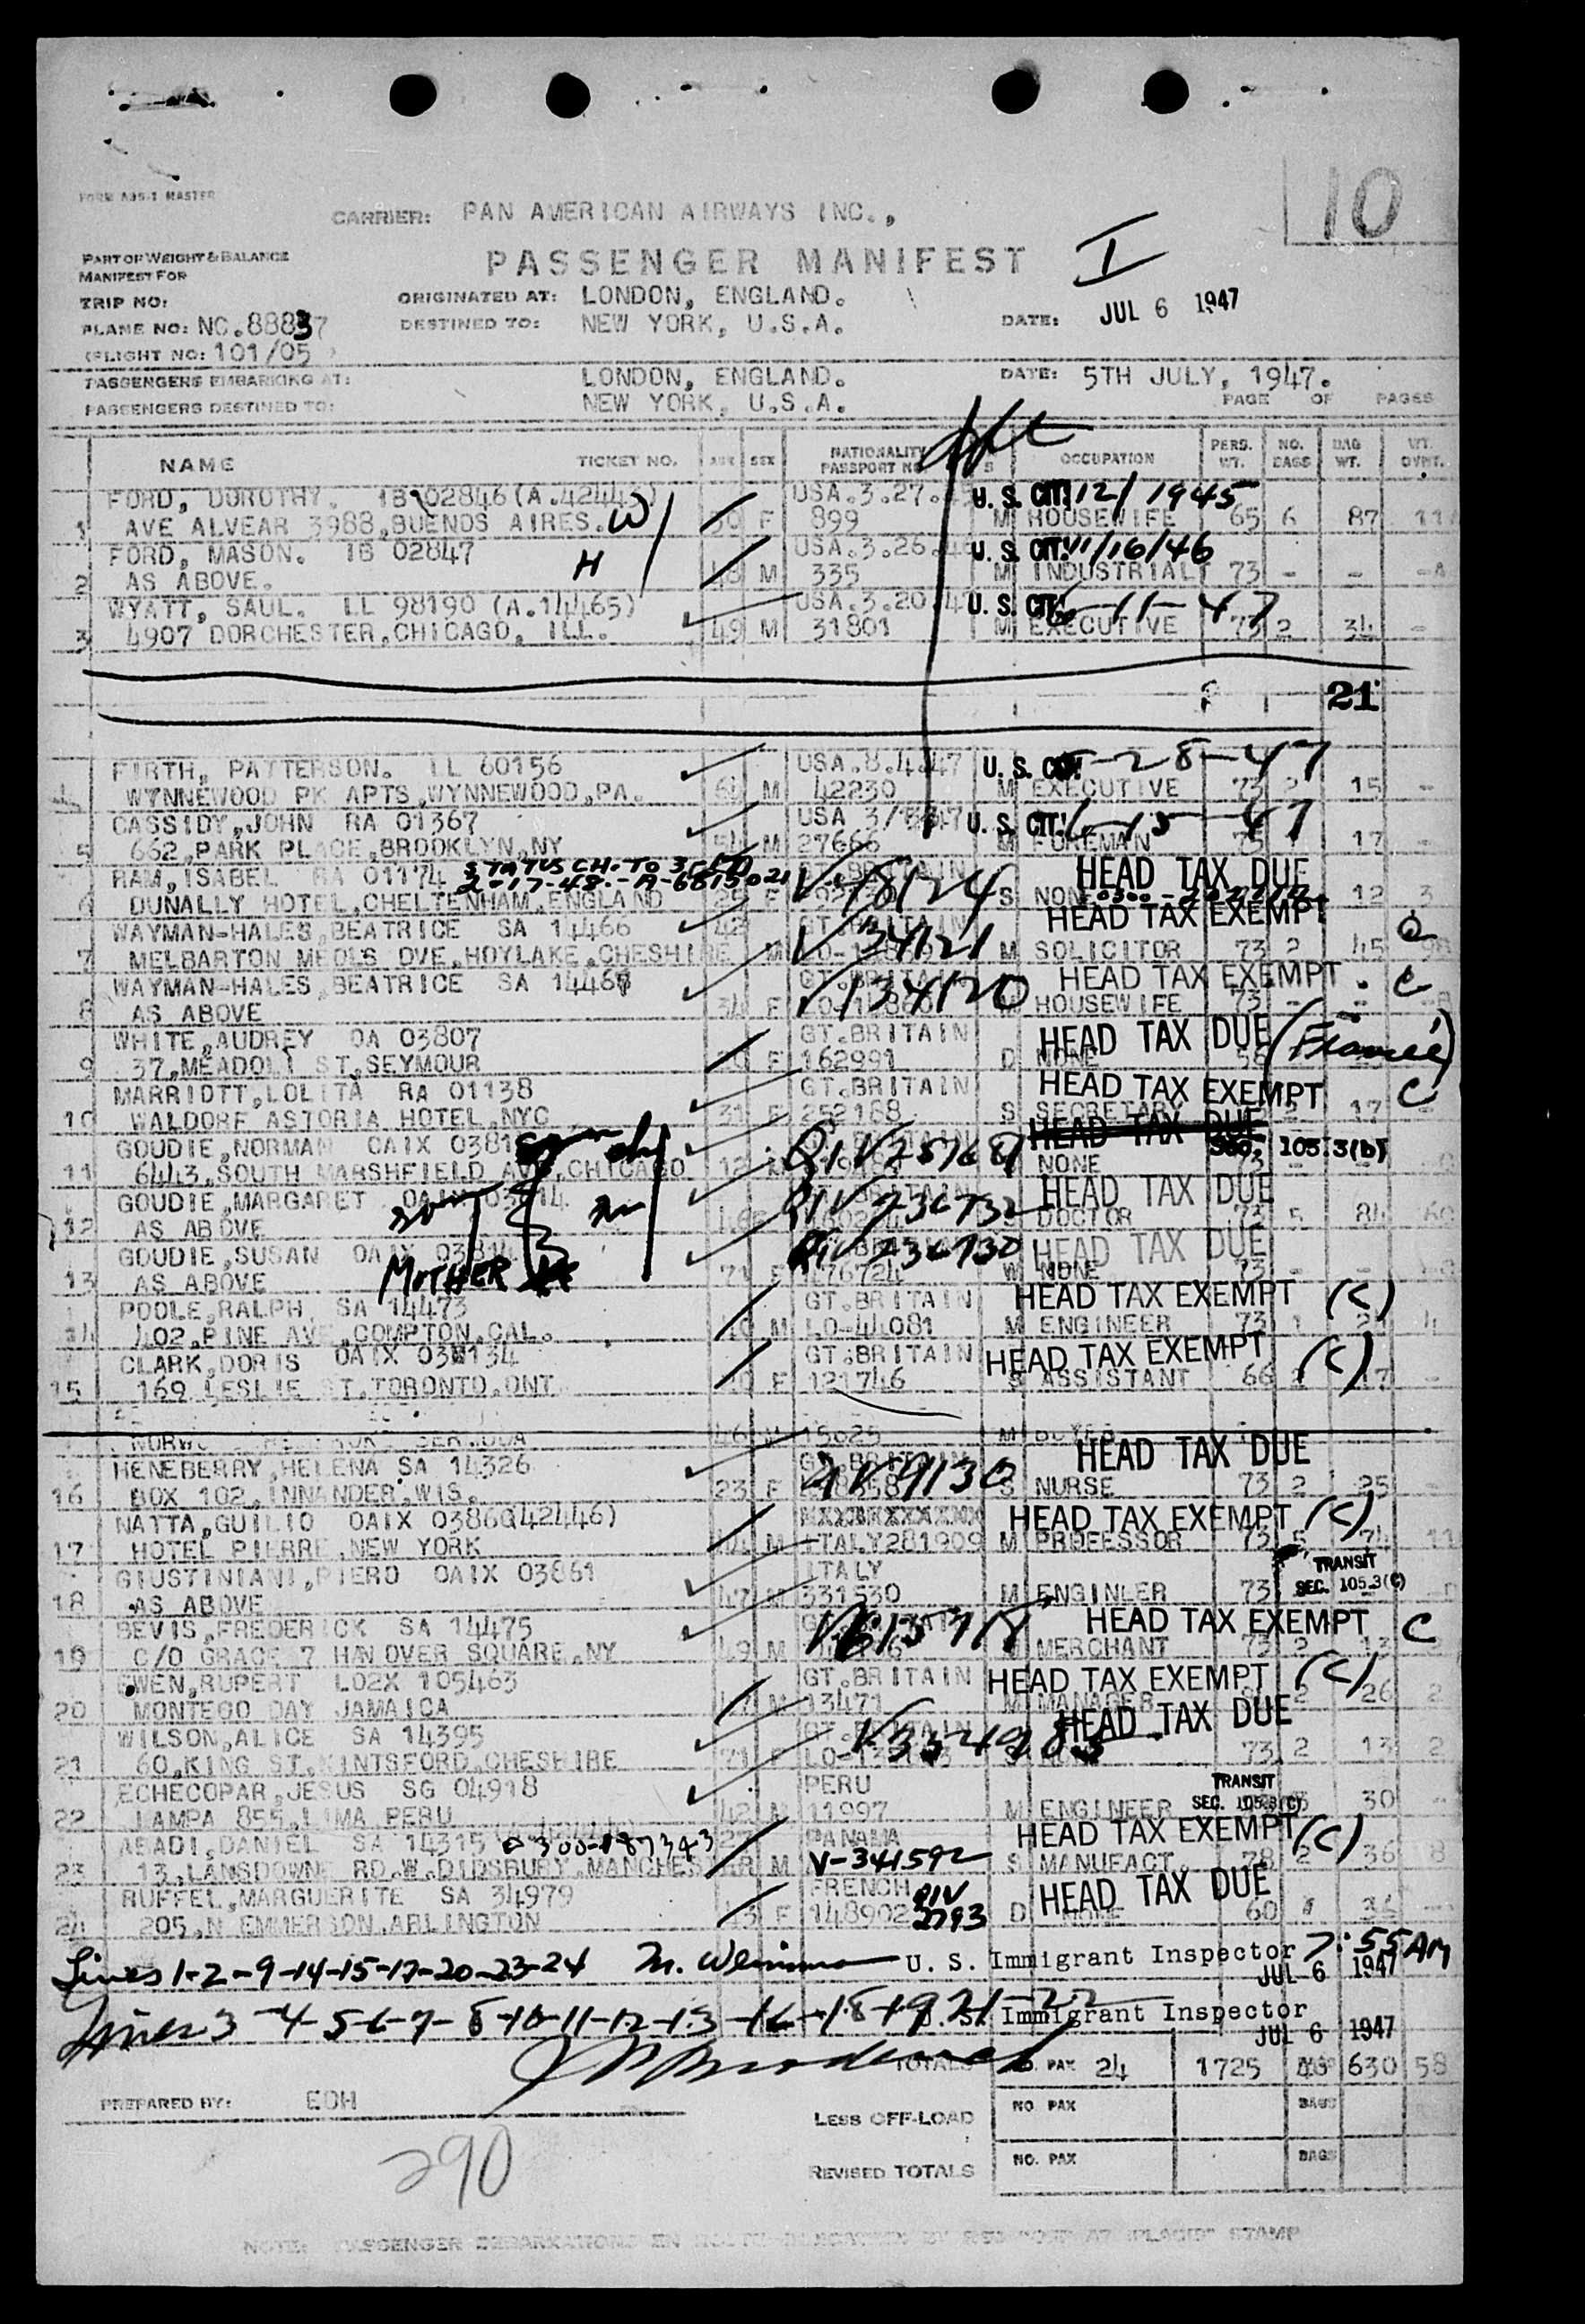 10
FORM A95-1 MASTER
CARRIER: PAN AMERICAN AIRWAYS INC.,
PASSENGER MANIFEST
I
PART OF WEIGHT & BALANCE
MANIFEST FOR
TRIP NO:
ORIGINATED AT: LONDON, ENGLAND.
PLANE NO: NC.88837
DESTINED TO: NEW YORK, U.S.A.
DATE: JUL 6 1947
FLIGHT NO: 101/05
PASSENGERS EMBARKING AT: LONDON, ENGLAND. DATE: 5TH JULY, 1947.
PASSENGERS DESTINED TO: NEW YORK, U.S.A. PAGE OF PAGES
NAME TICKET NO. AGE SEX NATIONALITY PASSPORT OCCUPATION PERS. WT. NO. BAGS BAG WT. WT. OVWT.
FORD, DOROTHY. 1B 02846 (A.42443) USA.3.27. U. S. CIT. 12/ 1945
1 AVE ALVEAR 3988, BUENOS AIRES. W F 899 M HOUSEWIFE 65 6 87
FORD, MASON. 1B 02847 H USA.3.26. U. S. CIT. 11/16/46
2 AS ABOVE. 48 M 335 M INDUSTRIAL 73 - -
WYATT, SAUL. LL 98190 (A.14465) USA.3.20.47 U. S. CIT. 6-11-47
3 4907 DORCHESTER, CHICAGO, ILL. 49 M 31801 M EXECUTIVE 73 2 34 -
21
FIRTH, PATTERSON. LL 60156 USA.8.4.47 U. S. CIT. 5-28-47
4 WYNNEWOOD PK APTS, WYNNEWOOD, PA. 64 M 42230 M EXECUTIVE 73 2 15 -
CASSIDY, JOHN RA 01367 USA U. S. CIT. 6-13-47
5 662, PARK PLACE, BROOKLYN, NY 54 M 27666 M FOREMAN 73 1 17 -
RAM, ISABEL RA 01174 STATUS CH. TO HEAD TAX DUE
2-17-48.- A-6815021 V-18124
6 DUNALLY HOTEL, CHELTENHAM, ENGLAND 25 F S NONE 12 3
WAYMAN-HALES, BEATRICE SA 14466 42 GT.BRITAIN HEAD TAX EXEMPT
7 MELBARTON MEOLS DVE, HOYLAKE, CHESHIRE M V 34121 M SOLICITOR 73 2 45
WAYMAN-HALES, BEATRICE SA 14467 GT.BRITAIN HEAD TAX EXEMPT C
8 AS ABOVE 34 F V 134120 HOUSEWIFE 73 - -
WHITE, AUDREY OA 03807 GT.BRITAIN HEAD TAX DUE (Francé)
9 37, MEADOLT ST, SEYMOUR F 162991 D NONE 56
MARRIOTT, LOLITA RA 01138 GT.BRITAIN HEAD TAX EXEMPT C
10 WALDORF ASTORIA HOTEL, NYC 31 F 252188 S SECRETARY 17 -
GOUDIE, NORMAN OAIX HEAD TAX DUE
SEC. 105.3(b)
11 6443, SOUTH MARSHFIELD AVE, CHICAGO 12 M QIV 25768 NONE
GOUDIE, MARGARET OAIX HEAD TAX DUE
12 AS ABOVE QIV 236732 S DOCTOR 73 5 84
GOUDIE, SUSAN OAIX 03814 HEAD TAX DUE
13 AS ABOVE MOTHER 71 F 176724 QIV 236730 W NONE 73 - -
POOLE, RALPH, SA 14473 GT.BRITAIN HEAD TAX EXEMPT (C)
14 402, PINE AVE, COMPTON, CAL. M LO-44081 M ENGINEER 73 1
CLARK, DORIS OAIX GT.BRITAIN HEAD TAX EXEMPT (C)
15 169 LESLIE ST, TORONTO, ONT. F 121746 S ASSISTANT 66 17 -
46 M 15625 M
HENEBERRY, HELENA SA 14326 HEAD TAX DUE
16 BOX 102, WIS. 23 F 9130 S NURSE 73 2 25 -
NATTA, GUILIO OAIX 03860 (42446) HEAD TAX EXEMPT (C)
17 HOTEL PIERRE, NEW YORK 44 M ITALY 281909 M PROFESSOR 73 5 74
GIUSTINIANI, PIERO OAIX 03861 ITALY TRANSIT
18 AS ABOVE 47 M 331530 M ENGINEER 73 SEC. 105.3(C)
BEVIS, FREDERICK SA 14475 HEAD TAX EXEMPT C
19 C/O GRACE 7 HANOVER SQUARE, NY 49 M MERCHANT 73 2 13
EWEN, RUPERT LO2X 105463 GT.BRITAIN HEAD TAX EXEMPT (C)
20 MONTEGO DAY JAMAICA M 13471 M MANAGER 2 26 2
WILSON, ALICE SA 14395 HEAD TAX DUE
21 60, KING ST. KINTSFORD, CHESHIRE 71 F 73 2 13 2
ECHECOPAR, JESUS SG 04918 PERU TRANSIT
22 LAMPA 855, LIMA PERU 42 M 11997 M ENGINEER SEC. 105.3(C) 30 -
ABADI, DANIEL SA 14315 0300-187343 PANAMA HEAD TAX EXEMPT (C)
23 13, LANSDOWNE RD. W. DIDSBURY, MANCHES M V-341592 S MANUFACT. 78 2 36 8
RUFFEL, MARGUERITE SA 34979 FRENCH QIV HEAD TAX DUE
24 205, N EMMERSON, ARLINGTON 43 F 148902 2793 D NONE 60
Lines 1-2-9-14-15-17-20-23-24 U. S. Immigrant Inspector 7:55 AM
JUL 6 1947
Lines 3-4-5-6-7-8-10-11-12-13-16-18-19-21-22 Immigrant Inspector
JUL 6 1947
TOTALS NO. PAX 24 1725 630 58
PREPARED BY: EOH
LESS OFF-LOAD NO. PAX BAGS
290
REVISED TOTALS NO. PAX BAGS
NOTE: PASSENGER DEBARKATIONS EN STAMP